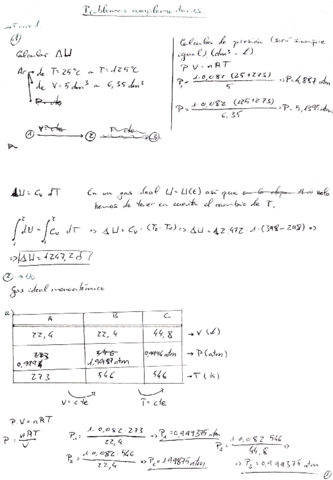 Problemas complementarios
→ Tema 1
①
Calcular ΔU
Ar de T=25°C a T=125°C
de V=5dm³ a 6,35dm³
① V=cte ② ③
Calcular la presión (será siempre
igual) (dm³ = L)
P V = n R T
P₁ = 1·0,082·(25+273) / 5 ⇒ P=4,887 atm
P₂ = 1·0,082 (125+273) / 6,35
dU = Cv dT En un gas ideal U=U(t) así que
hemos de tener en cuenta el cambio de T.
∫₁² dU = ∫₁² Cv dT ⇒ ΔU = Cv · (T₂-T₁) ⇒ ΔU = 12'472 · 1 · (398-298) ⇒
⇒ ΔU = 1247,2 J
②
Gas ideal monoatómico
a)
A B C
22,4 22,4 44,8 → V (L)
0,9994 1,9987 atm 0,9994 atm → P (atm)
273 546 546 → T (K)
V = cte T = cte
P V = n R T
P = nRT / V P₁ = 1·0,082·273 / 22,4 ⇒ P₁=0,999375 atm
P₂ = 1·0,082·546 / 22,4 ⇒ P₂=1,99875 atm
P₃ = 1·0,082·546 / 44,8 ⇒
⇒ P₃=0,999375 atm
①